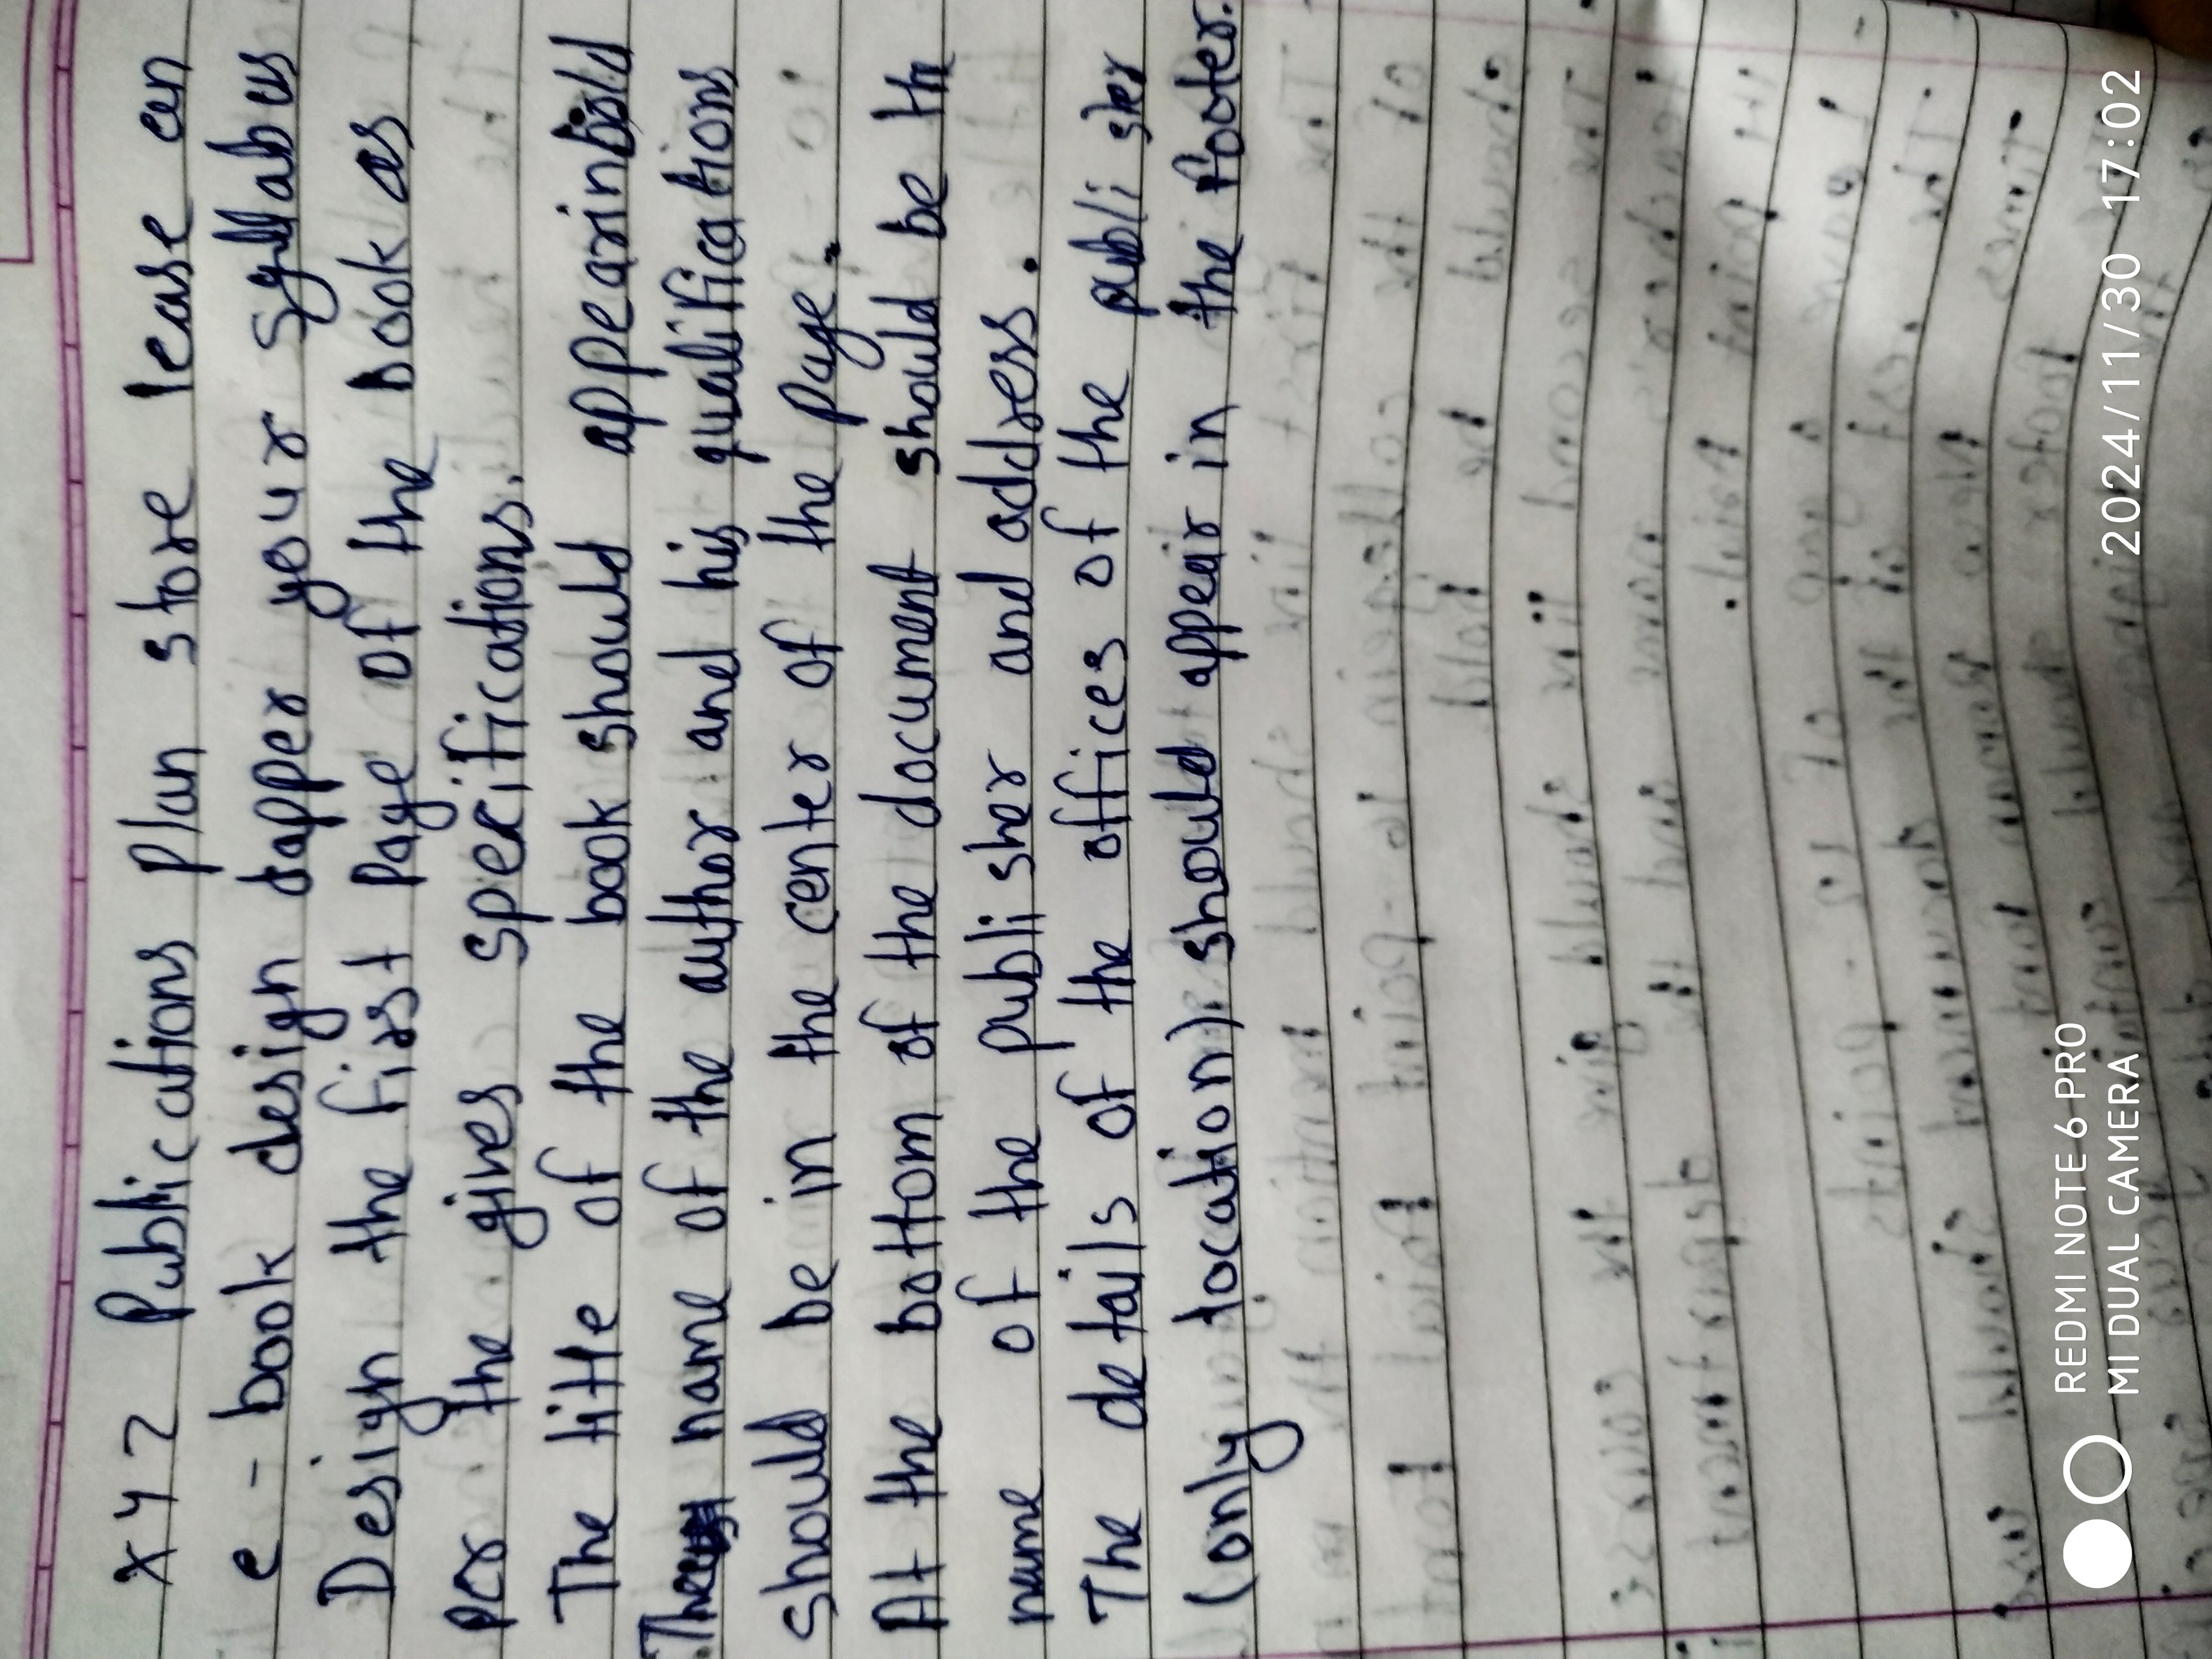 XYZ Publications plan store lease an
e - book design dapper your syllabus
Design the first Page of the book as
per the gives specifications.
The title of the book should appearinbold
The name of the author and his qualifications
should be in the center of the page.
At the bottom of the document should be the
name of the publisher and address.
The details of the offices of the publisher
(only location). should appear in the footer.
REDMI NOTE 6 PRO
MI DUAL CAMERA
2024/11/30 17:02